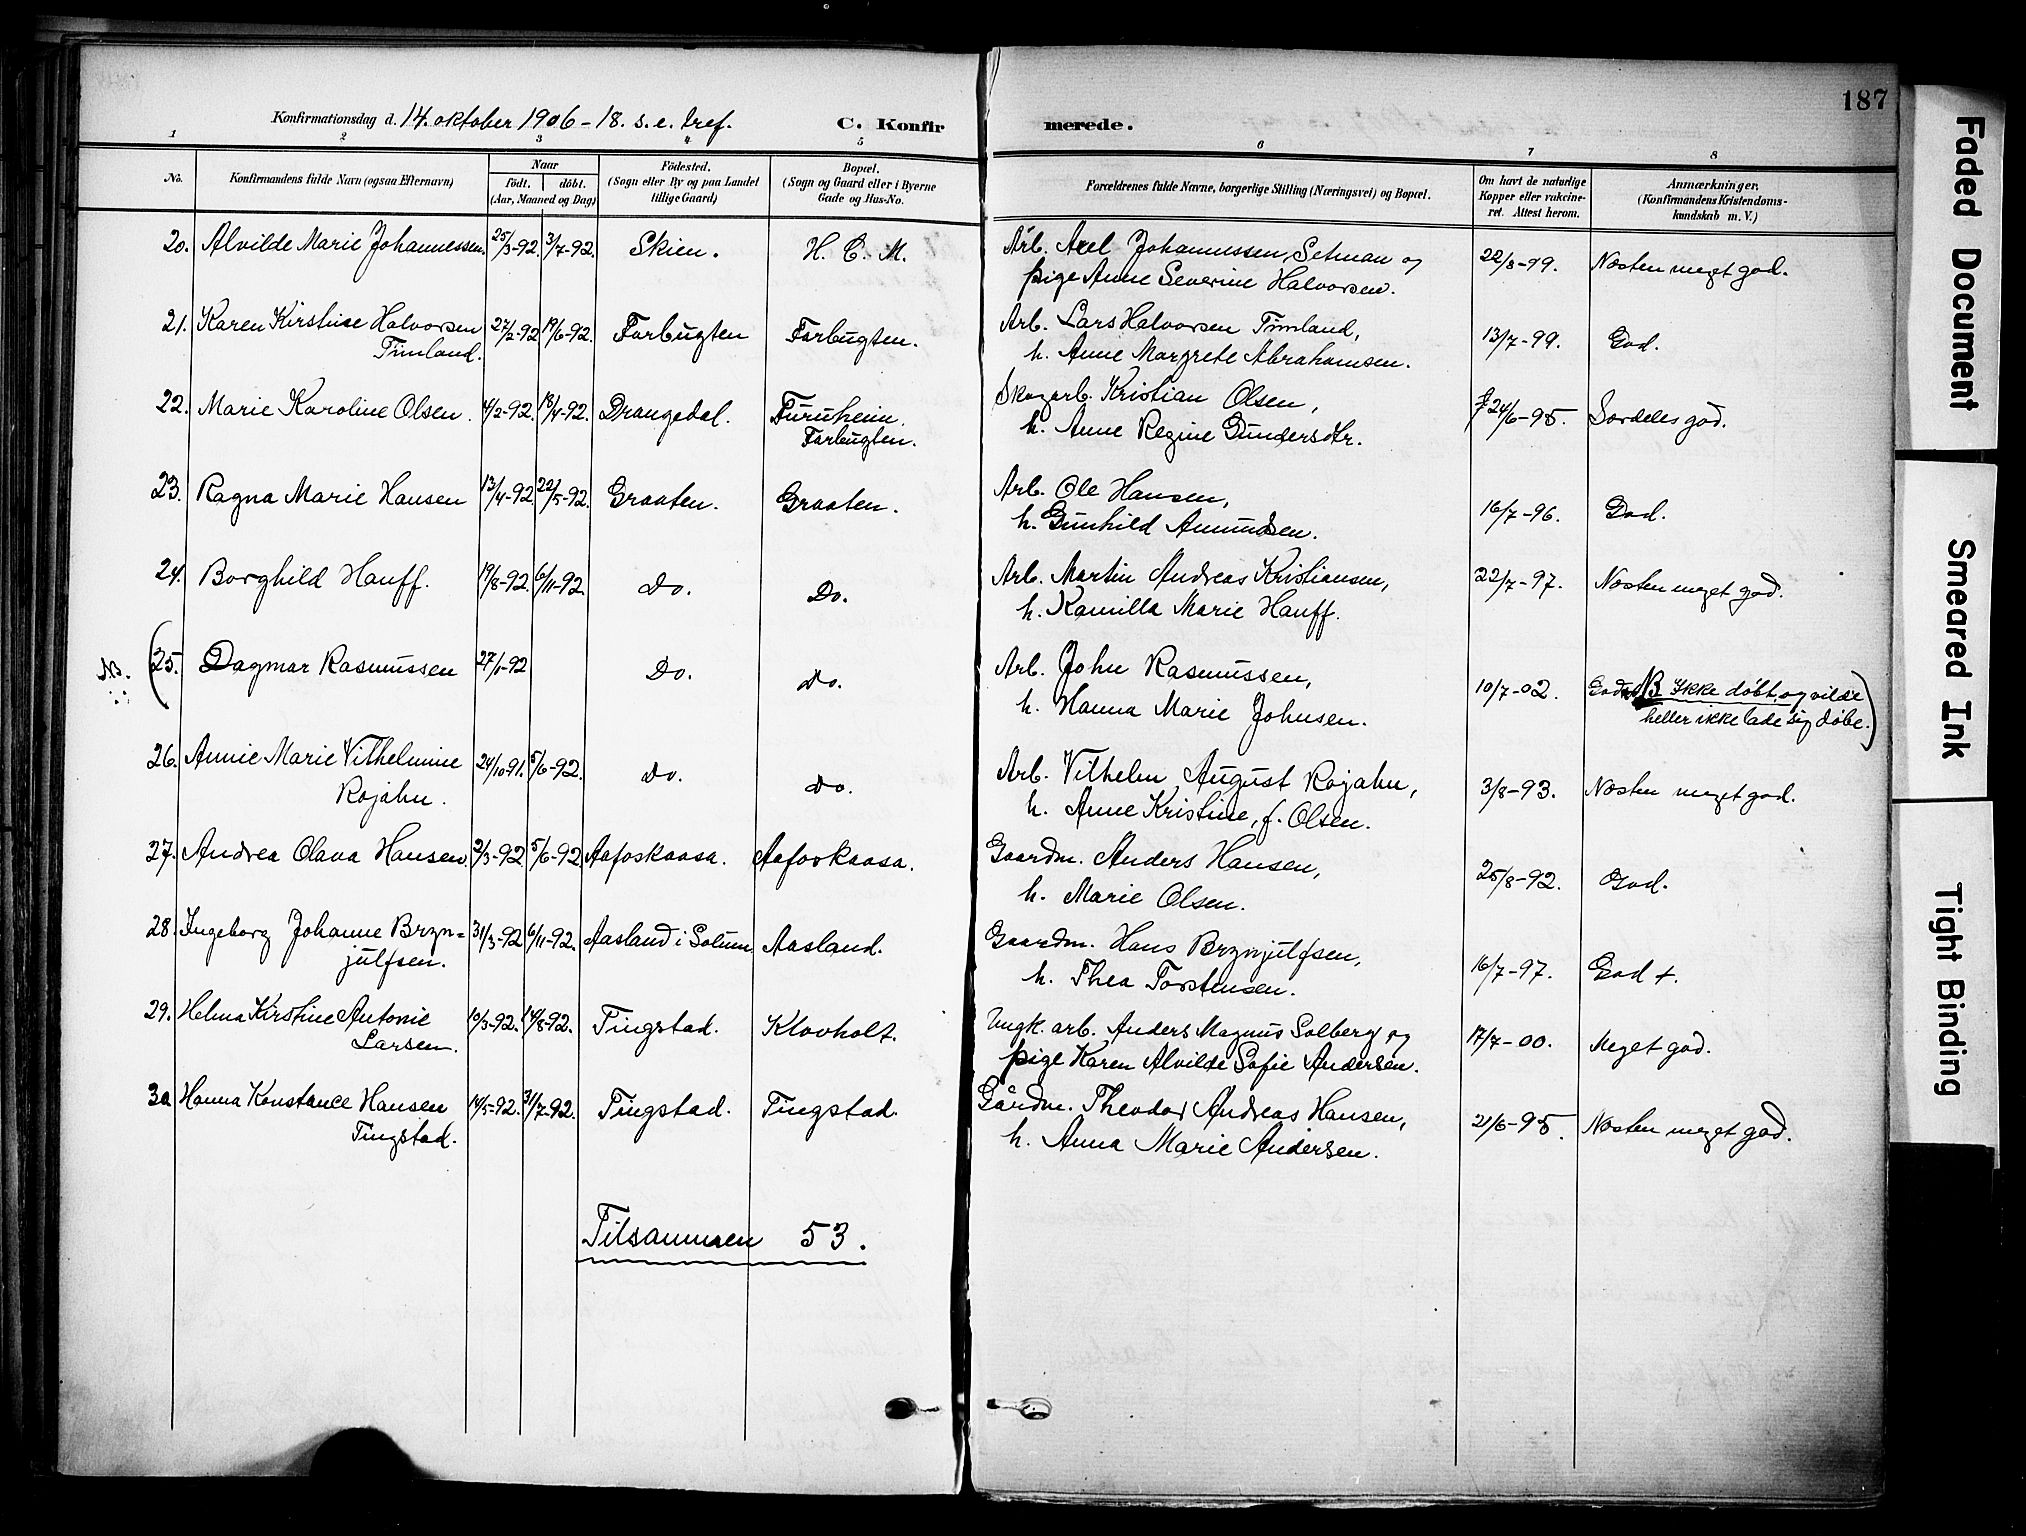 187
Konfirmationsdag d. 14. oktober 1906 - 18. s. e. tref. C. Konfirmerede.
1 2 3 4 5 6 7 8
No. Konfirmandens fulde Navn (ogsaa Efternavn) Naar födt. döbt. (Aar, Maaned og Dag) Födested. (Sogn eller By og paa Landet tillige Gaard) Bopæl. (Sogn og Gaard eller i Byerne Gade og Hus-No. Forældrenes fulde Navne, borgerlige Stilling (Næringsvei) og Bopæl. Om havt de naturlige Kopper eller vaksineret. Attest herom. Anmærkninger. (Konfirmandens Kristendomskundskab m. V.)
20. Alvilde Marie Johannessen. 25/3-92. 3/7-92. Skien. H. C. M. Arb. Axel Johannessen, Setman og 22/8-99. Næsten meget god.
pige Anne Severine Halvorsen.
21. Karen Kirstine Halvorsen 27/2-92 19/6-92. Farbugten Farbugten. Arb. Lars Halvorsen Timland, 13/7-99. God.
Timland. h. Anne Margrete Abrahamsen.
22. Marie Karoline Olsen. 4/2-92. 18/4-92. Drangedal. Furuheim. Skogarb. Kristian Olsen, 24/6-95. Særdeles god.
Farbugten. h. Anne Regine Gundersdtr.
23. Ragna Marie Hansen 13/4-92 22/5-92. Graaten. Graaten. Arb. Ole Hansen, 16/7-96. God.
h. Gunhild Amundsen.
24. Borghild Hauff. 19/8-92. 6/11-92. Do. Do. Arb. Martin Andreas Kristiansen, 22/7-97. Næsten meget god.
h. Kamilla Marie Hauff.
NB. (25. Dagmar Rasmussen 27/1-92 Do. Do. Arb. John Rasmussen, 10/7-02. God. NB Ikke döbt, og vilde
h. Hanna Marie Johnsen. heller ikke lade sig döbe.)
26. Annie Marie Vilhelmine 24/10-91. 5/6-92. Do. Do. Arb. Vilhelm August Rojahn, 3/8-93. Næsten meget god.
Rojahn. h. Anne Kristine, f. Olsen.
27. Andrea Olava Hansen. 2/3-92 5/6-92 Aafoskaasa. Aafoskaasa. Gaardm. Anders Hansen, 25/8-92. God.
h. Marie Olsen.
28. Ingeborg Johanne Bryn= 31/3-92 6/11-92. Aasland i Solum Aasland. Gaardm. Hans Brynjulfsen, 16/7-97. God +.
julfsen. h. Thea Torstensen.
29. Helma Kirstine Antonie 10/3-92. 14/8-92. Tingstad. Klovholt. Ungk. arb. Anders Magnus Solberg og 17/7-00. Meget god.
Larsen. pige Karen Alvilde Sofie Andersen.
30 Hanna Konstance Hansen 14/5-92. 31/7-92. Tingstad. Tingstad. Gårdm. Theodor Andreas Hansen, 21/6-95. Næsten meget god.
Tingstad. h. Anna Marie Andersen.
Tilsammen 53.
Faded Document
Smeared Ink
Tight Binding